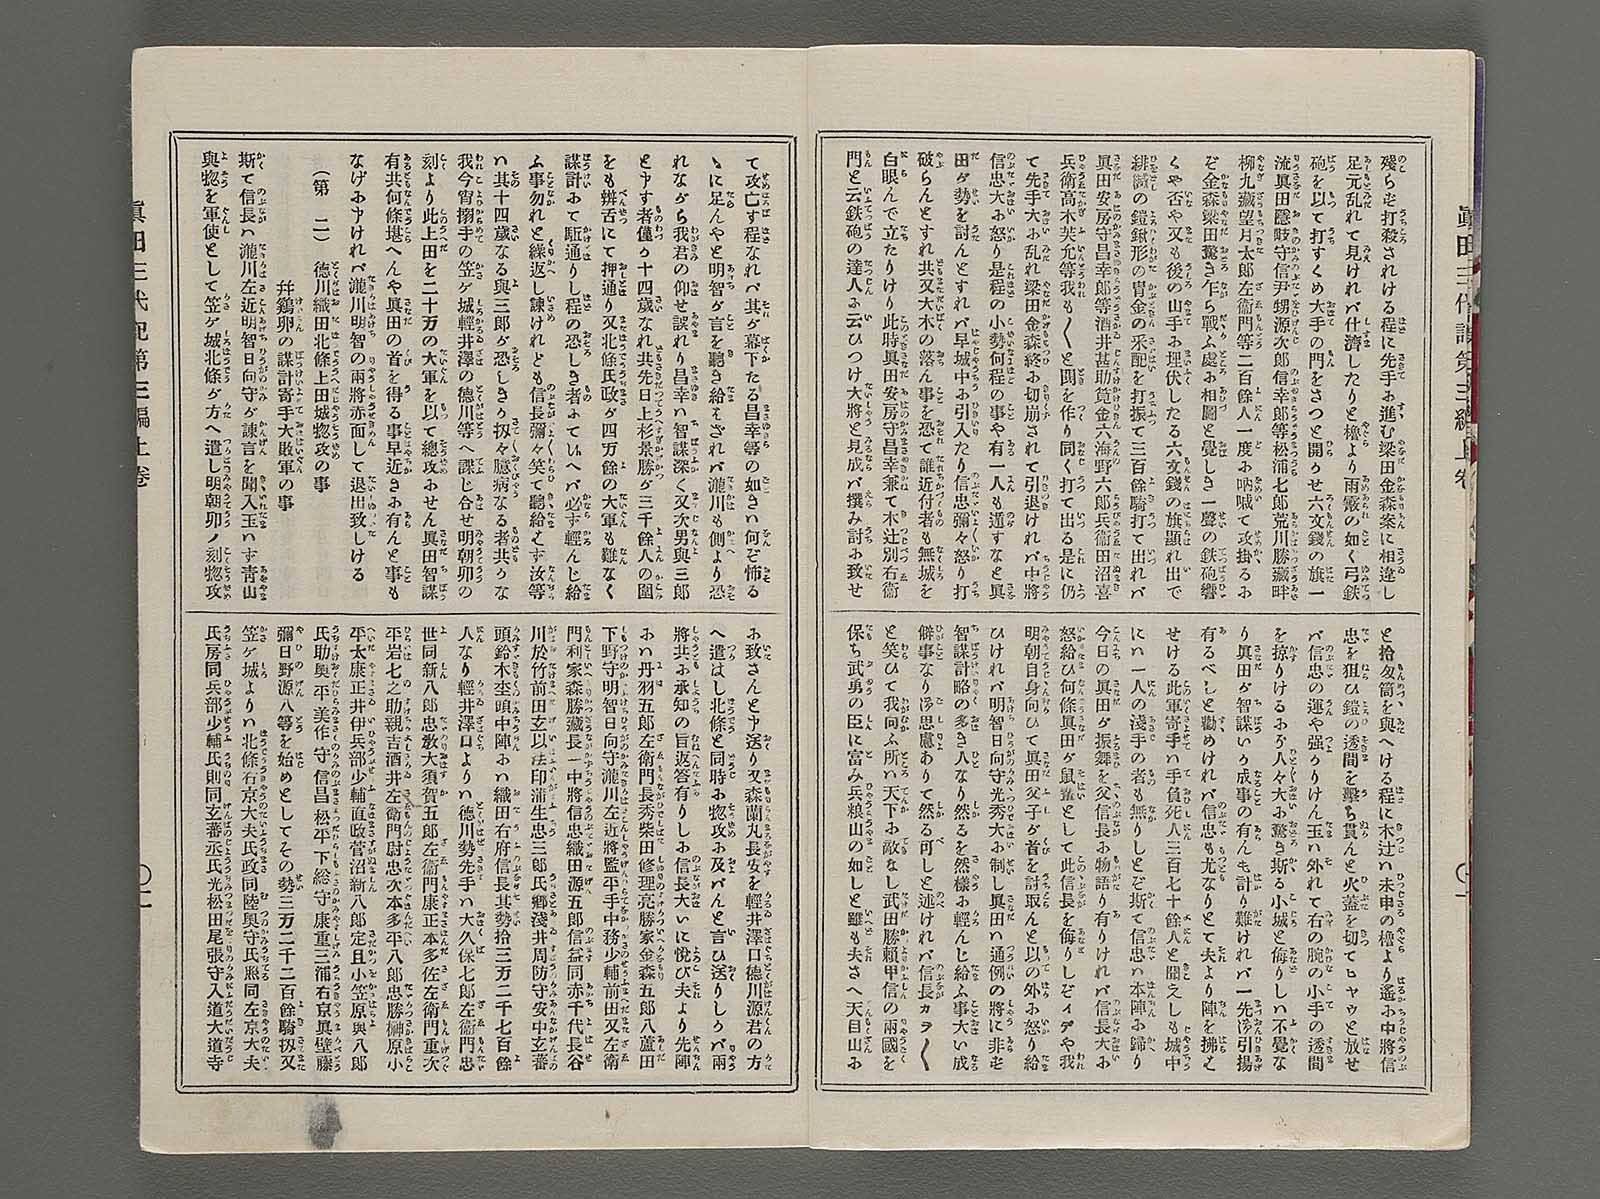 眞田三代記第三編上卷
殘らず打殺されける程に先手に進む梁田金森案に相違し
足元乱れて見けれバ仕濟したりと櫓より雨霰の如く弓鉄
砲を以て打すくめ大手の門をさつと開かせ六文錢の旗一
流眞田隱岐守信尹甥源次郎信幸郎等松浦七郎荒川勝藏畔
柳九藏望月太郎左衞門等二百餘人一度に吶喊て攻掛るに
ぞ金森梁田驚き乍ら戰ふ處に相圖と覺しき一聲の鉄砲響
くや否や又も後の山手に埋伏したる六文錢の旗顯れ出で
緋縅の鎧鍬形の冑金の采配を打振て三百餘騎打て出れバ
眞田安房守昌幸郎等酒井甚助筧金六海野六郎兵衞田沼喜
兵衞高木芙允等我も〳〵と鬨を作り同く打て出る是に仍
て先手大に乱れ梁田金森終に切崩されて引退けれバ中將
信忠大に怒り是程の小勢何程の事や有一人も遁すなと眞
田が勢を討んとすれバ早城中に引入たり信忠彌々怒り打
破らんとすれ共又大木の落ん事を恐て誰近付者も無城を
白眼んで立たりけり此時眞田安房守昌幸兼て木辻別右衞
門と云鉄砲の達人に云ひつけ大將と見成バ撰み討に致せ
と拾匁筒を與へける程に木辻ハ未申の櫓より遙に中將信
忠を狙ひ鎧の透間を擊ち貫んと火蓋を切てヒヤウと放せ
バ信忠の運や强かりけん玉ハ外れて右の腕の小手の透間
を掠りけるにぞ人々大に驚き斯る小城と侮りしハ不覺な
り眞田が智謀いか成事の有んも計り難けれバ一先づ引揚
有るべしと勸めけれバ信忠も尤もなりとて夫より陣を拂ハ
せける此軍寄手ハ手負死人三百七十餘人と聞えしも城中
にハ一人の淺手の者も無りしとぞ斯て信忠ハ本陣に歸り
今日の眞田が振舞を父信長に物語り有りけれバ信長大に
怒給ひ何條眞田が鼠輩として此信長を侮りしぞイデや我
明朝自身向ひて眞田父子が首を討取んと以の外に怒り給
ひけれバ明智日向守光秀大に制し眞田ハ通例の將に非ず
智謀計略の多き人なり然るを然樣に輕んじ給ふ事大ハ成
僻事なり淨思慮ありて然る可しと述けれバ信長カラ〳〵
と笑ひて我向ふ所ハ天下に敵なし武田勝賴甲信の兩國を
保ち武勇の臣に富み兵粮山の如しと雖も夫さへ天目山に
て攻亡す程なれバ其が幕下たる昌幸等の如きハ何ぞ怖る
ゝに足んやと明智が言を聽き給ハざれバ瀧川も側より恐
れながら我君の仰せ誤れり昌幸ハ智謀深く又次男與三郎
と申す者僅か十四歲なれ共先日上杉景勝が三千餘人の圍
を辨舌にて押通り又北條氏政が四万餘の大軍も難なく
謀計にて駈通りし程の恐しき者にてハへバ必ず輕んじ給
ふ事勿れと繰返し諫けれども信長彌々笑て聽給ハず汝等
ハ其十四歲なる與三郎が恐しきか扨々臆病なる者共かな
我今宵搦手の笠ヶ城輕井澤の德川等へ諜じ合せ明朝卯の
刻より此上田を二十万の大軍を以て總攻にせん眞田智謀
有共何條堪へんや眞田の首を得る事早近きに有んと事も
なげに申けれバ瀧川明智の兩將赤面して退出致しける
(第二) 德川織田北條上田城惣攻の事
幷鷄卵の謀計寄手大敗軍の事
斯て信長ハ瀧川左近明智日向守が諫言を聞入玉ハず靑山
與惣を軍使として笠ヶ城北條が方へ遣し明朝卯ノ刻惣攻
に致さんと申送り又森蘭丸長安を輕井澤口德川源君の方
へ遣はし北條と同時に惣攻に及バんと言ひ送りしかバ兩
將共に承知の旨返答有りしに信長大いに悅び夫より先陣
にハ丹羽五郎左衞門長秀柴田修理亮勝家金森五郎八蘆田
下野守明智日向守瀧川左近將監平手中務少輔前田又左衞
門利家森勝藏長一中將信忠織田源五郎信益同赤千代長谷
川於竹前田玄以法印蒲生忠三郎氏鄕淺井周防守安中玄蕃
頭鈴木杢頭中陣にハ織田右府信長其勢拾三万二千七百餘
人なり輕井澤口よりハ德川勢先手ハ大久保七郎左衞門忠
世同新八郎忠敎大須賀五郎左衞門康正本多佐左衞門重次
平岩七之助親吉酒井左衞門尉忠次本多平八郎忠勝榊原小
平太康正井伊兵部少輔直政菅沼新八郎定且小笠原與八郎
氏助奧平美作守信昌松平下総守康重三浦右京眞壁藤
彌日野源八等を始めとしてその勢三万二千二百餘騎扨又
笠ヶ城よりハ北條右京大夫氏政同陸奧守氏照同左京大夫
氏房同兵部少輔氏則同玄蕃丞氏光松田尾張守入道大道寺
眞田三代記第三編上卷